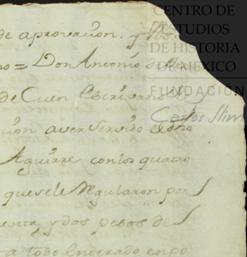 de aprovacion. y
no = Don Antonio de
de Cuen Escrivano
cion aver Servido el dho
Aguirre con los quatro
que se le Regularon por
y dos pesos de
a todo Enterado en po
CENTRO DE
ESTUDIOS
DE HISTORIA
DE MÉXICO
FUNDACIÓN
Carlos Slim